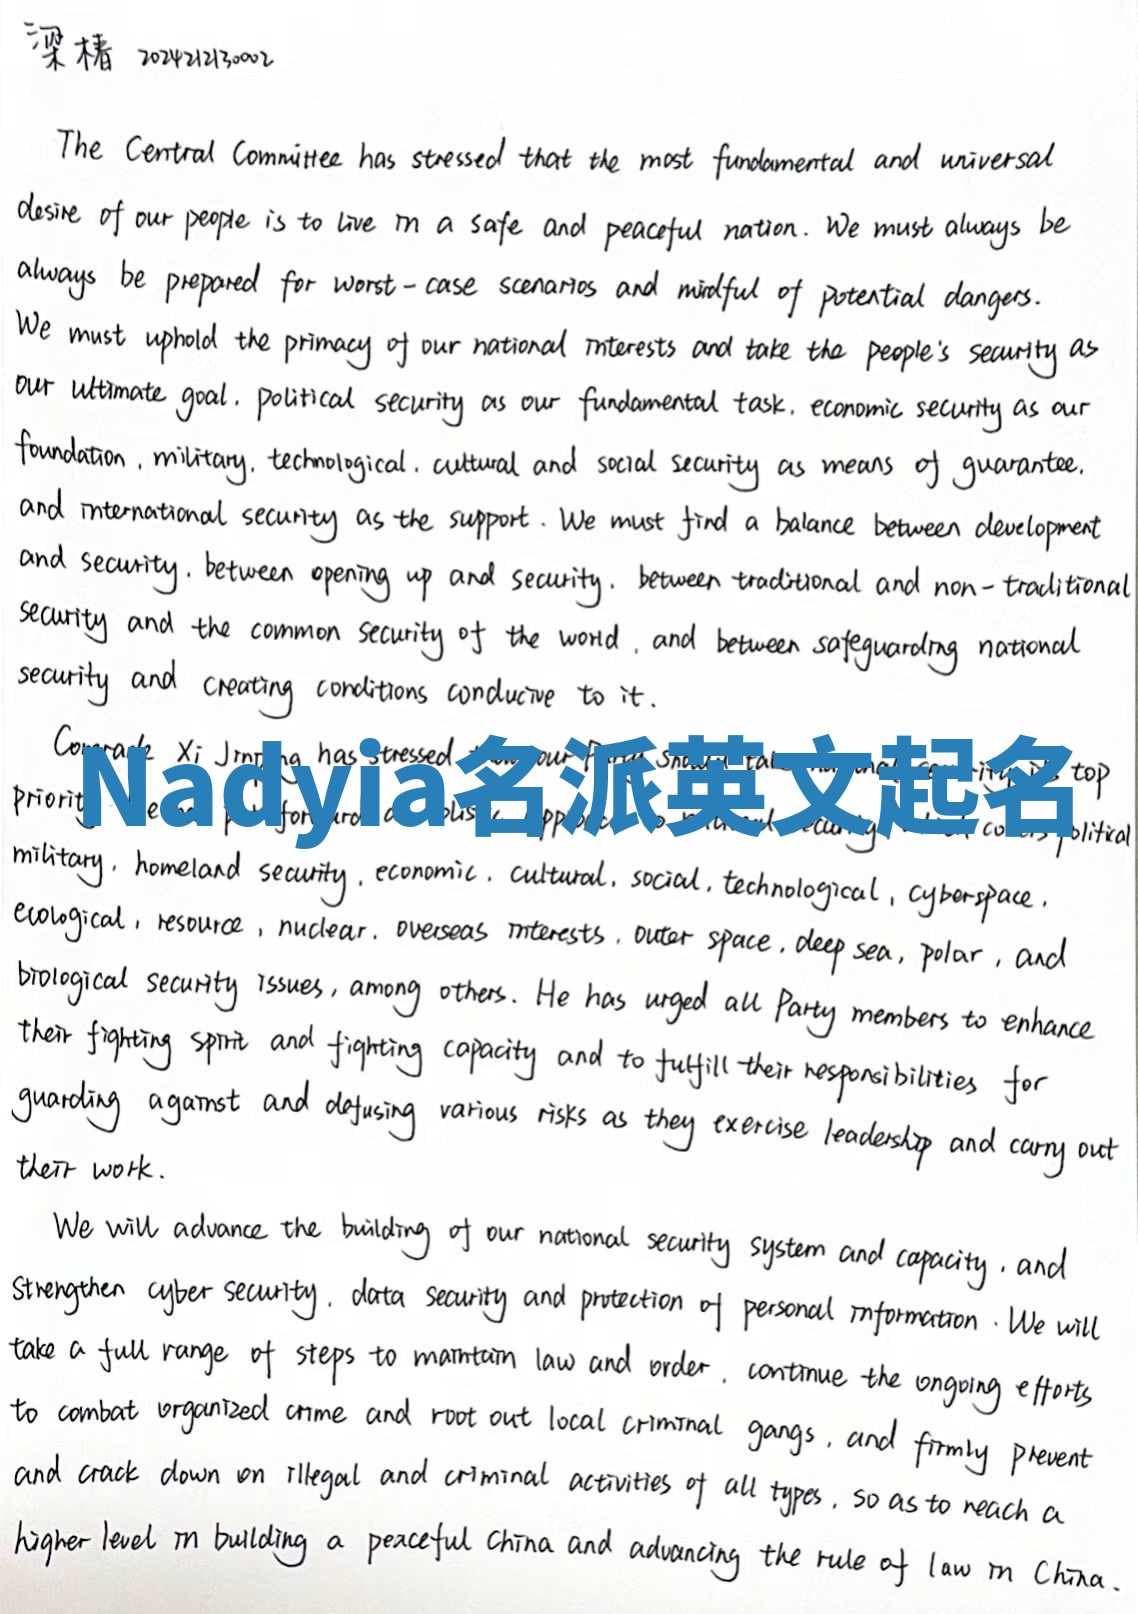 梁椿 2024212130002
The Central Committee has stressed that the most fundamental and universal
desire of our people is to live in a safe and peaceful nation. We must always be
always be prepared for worst-case scenarios and mindful of potential dangers.
We must uphold the primacy of our national interests and take the people's security as
our ultimate goal, political security as our fundamental task, economic security as our
foundation, military, technological, cultural and social security as means of guarantee,
and international security as the support. We must find a balance between development
and security, between opening up and security, between traditional and non-traditional
security and the common security of the world, and between safeguarding national
security and creating conditions conducive to it.
Comrade Xi Jinping has stressed our Party top
Nadyia名派英文起名
priority political
military, homeland security, economic, cultural, social, technological, cyberspace,
ecological, resource, nuclear, overseas interests, outer space, deep sea, polar, and
biological security issues, among others. He has urged all Party members to enhance
their fighting spirit and fighting capacity and to fulfill their responsibilities for
guarding against and defusing various risks as they exercise leadership and carry out
their work.
We will advance the building of our national security system and capacity, and
strengthen cyber security, data security and protection of personal information. We will
take a full range of steps to maintain law and order, continue the ongoing efforts
to combat organized crime and root out local criminal gangs, and firmly prevent
and crack down on illegal and criminal activities of all types, so as to reach a
higher level in building a peaceful China and advancing the rule of law in China.